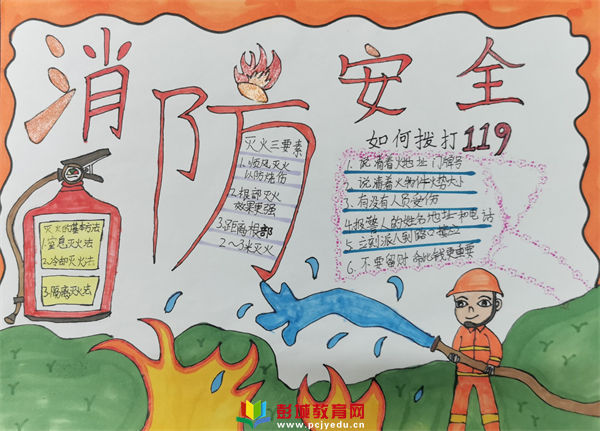 消防安全
如何拨打119
灭火三要素
1.顺风灭火
以防烧伤
2.根部灭火
效果更强
3.距离根部
2~3米灭火
1.说清着火地址门牌号
2.说清着火物件火势大小
3.有没有人员受伤
4.报警人的姓名地址和电话
5.立刻派人到路口接应
6.不要留财命比钱更重要
灭火的基本方法
1.窒息灭火法
2.冷却灭火法
3.隔离灭火法
彭城教育网
www.pcjyedu.cn